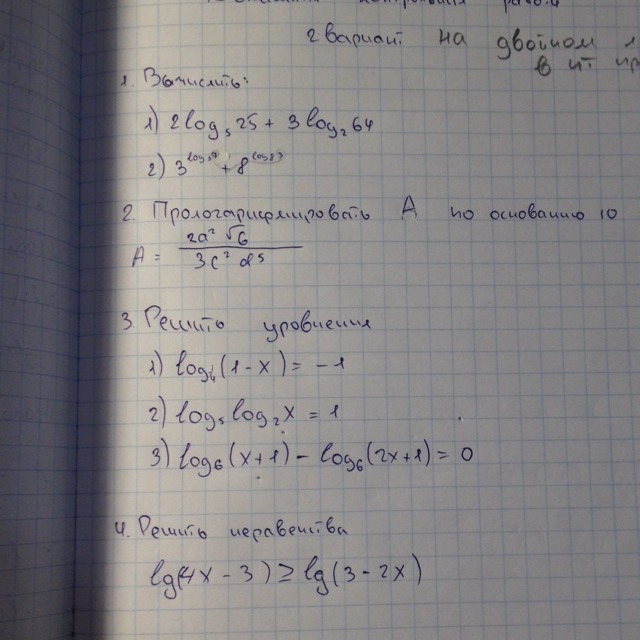 контрольная работа
2 вариант на двойном
в
1. Вычислить:
1) 2log₅25 + 3log₂64
2) 3^log₃7 + 8^log₈3
2. Прологарифмировать A по основанию 10
A = 2a² √6 / 3c² d⁵
3. Решить уровнения
1) log¼(1 - x) = -1
2) log₅log₂x = 1
3) log₆(x+1) - log₆(2x+1) = 0
4. Решить неравенства
lg(4x - 3) ≥ lg(3 - 2x)